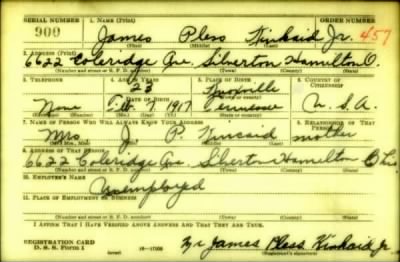 SERIAL NUMBER 1. NAME (Print)
900 James Pless Kinkaid Jr. 457
(First) (Middle) (Last)
2. ADDRESS (Print)
6622 Coleridge Ave. Silverton Hamilton O.
(Number and street or R. F. D. number) (Town) (County) (State)
3. TELEPHONE 4. AGE IN YEARS 5. PLACE OF BIRTH 6. COUNTRY OF CITIZENSHIP
23 Knoxville
DATE OF BIRTH (Town or county)
None Feb. 7 1917 Tennessee U. S. A.
(Mo.) (Day) (Yr.) (State or country)
7. NAME OF PERSON WHO WILL ALWAYS KNOW YOUR ADDRESS 8. RELATIONSHIP OF THAT PERSON
Mrs. J. P. Kincaid mother
(Mr., Mrs., Miss) (First) (Middle) (Last)
9. ADDRESS OF THAT PERSON
6622 Coleridge Ave. Silverton Hamilton Ohio
(Number and street or R. F. D. number) (Town) (County) (State)
10. EMPLOYER'S NAME
Unemployed
11. PLACE OF EMPLOYMENT OR BUSINESS
(Number and street or R. F. D. number) (Town) (County) (State)
I AFFIRM THAT I HAVE VERIFIED ABOVE ANSWERS AND THAT THEY ARE TRUE.
REGISTRATION CARD
D. S. S. Form 1 (over) James Pless Kinkaid Jr